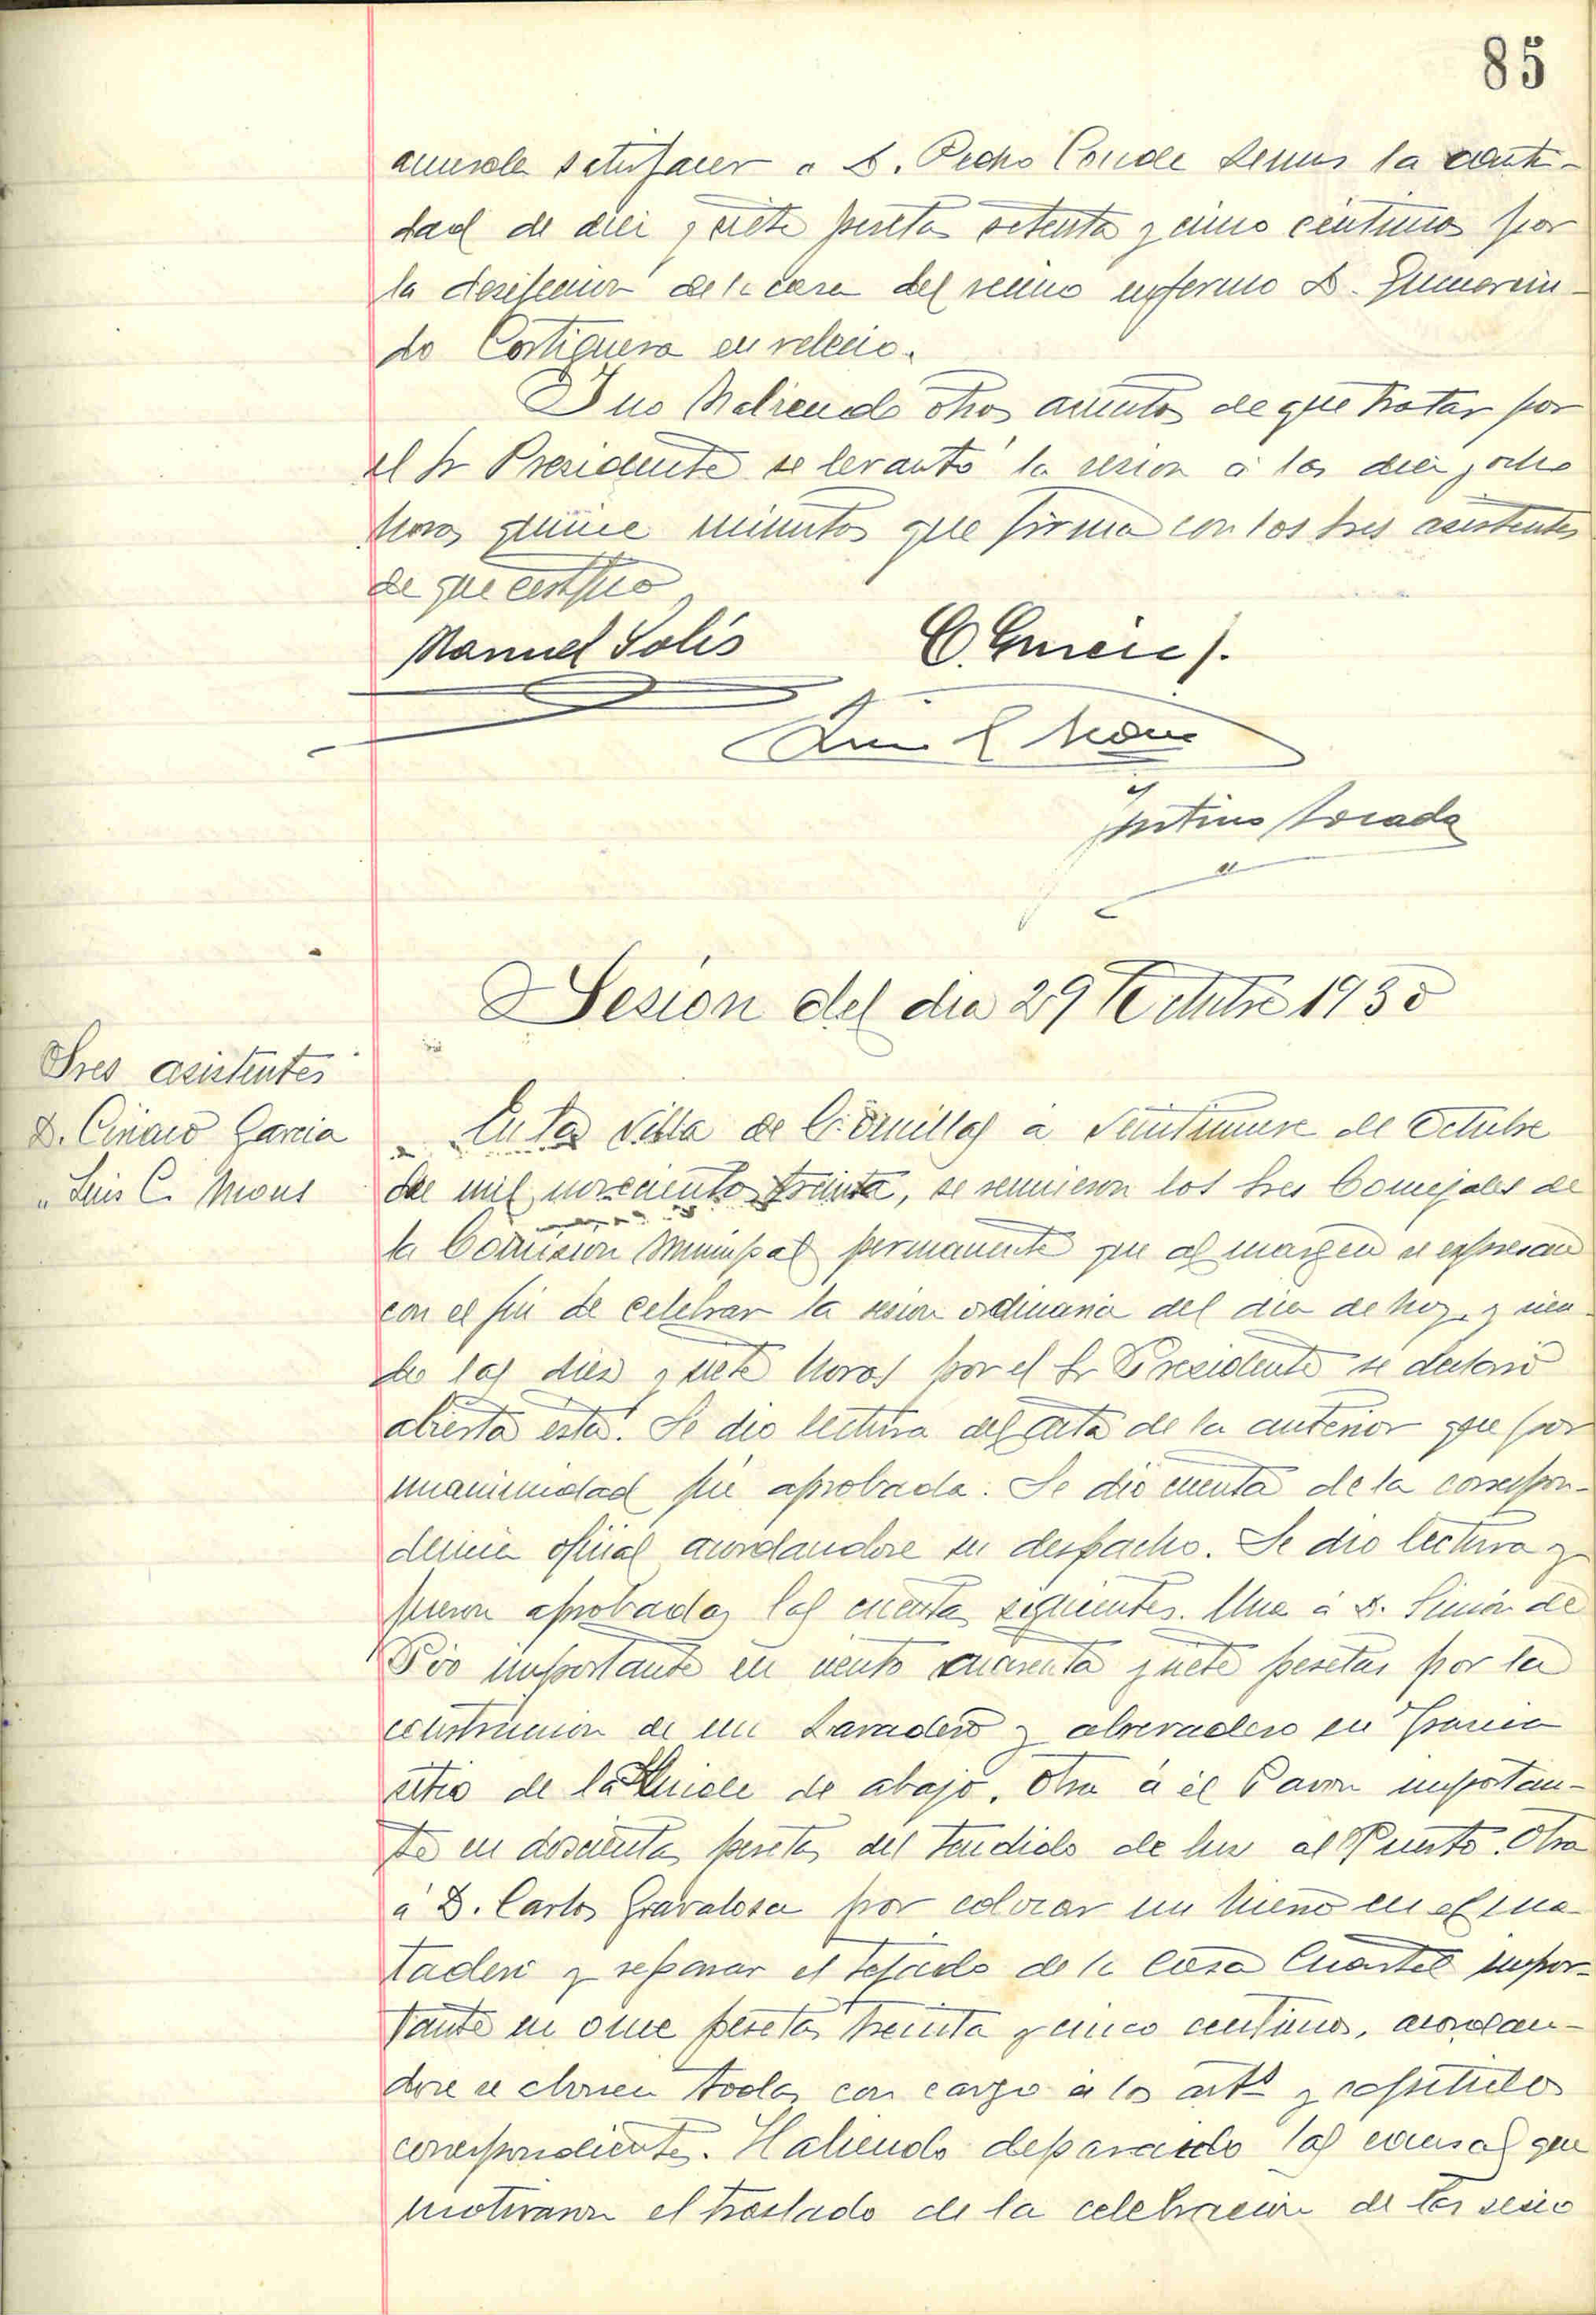 85
acuerda satisfacer a D. Pedro Conde la canti-
dad de diez y siete pesetas setenta y cinco céntimos por
la desifeccion de la casa del vecino enfermo D. Gumersin-
do Cortiguera
Y no habiendo otros asuntos de que tratar por
el Sr Presidente se levantó la sesion á las diez y ocho
horas quince minutos que firma con los Sres asistentes
de que certifico
Manuel Solís C. Garcia
Luis C Mons
Justino
Sesión del dia 29 Octubre 1930
Sres asistentes
D. Ciriaco Garcia
" Luis C. Mons
En la Villa de Comillas á veintinueve de Octubre
de mil novecientos treinta, se reunieron los Sres Concejales de
la Comisión Municipal permanente que al margen se expresan
con el fin de celebrar la sesion ordinaria del dia de hoy, y sien-
do las diez y siete horas por el Sr Presidente se declaró
abierta ésta. Se dio lectura del acta de la anterior que por
unanimidad fué aprobada. Se dió cuenta de la correspon-
dencia oficial acordandose su despacho. Se dio lectura y
fueron aprobadas las cuentas siguientes. Una á D. Simón de
Pío importante en ciento cuarenta y siete pesetas por la
construccion de un Lavadero y abrevadero en
sitio de la de abajo. Otra á él Pavon importan-
te en doscientas pesetas del tendido de luz al Puerto. Otra
á D. Carlos Gravalosa por colocar un hierro en el ma-
tadero y reparar el tejado de la Casa Cuartel impor-
tante en once pesetas treinta y cinco centimos, acordan-
dose se abonen todas con cargo á los artos y capitulos
correspondientes. Habiendo desparecido las causas que
motivaron el traslado de la celebracion de las sesio